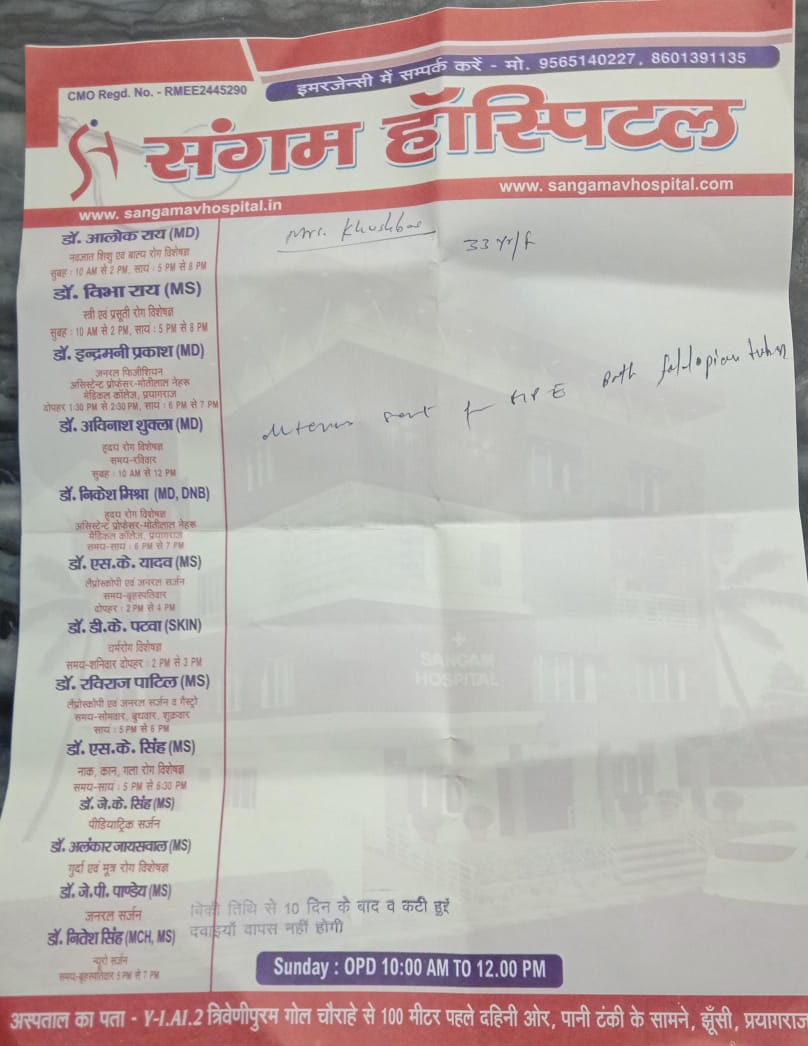 इमरजेन्सी में सम्पर्क करें - मो. 9565140227, 8601391135
CMO Regd. No. - RMEE2445290
संगम हॉस्पिटल
www. sangamavhospital.com
www. sangamavhospital.in
Mrs. Khushboo 33 Yr/f
डॉ. आलोक राय (MD)
नवजात शिशु एवं बाल्य रोग विशेषज्ञ
सुबह : 10 AM से 2 PM, सायं : 5 PM से 8 PM
डॉ. विभा राय (MS)
स्त्री एवं प्रसूती रोग विशेषज्ञ
सुबह : 10 AM से 2 PM, सायं : 5 PM से 8 PM
डॉ. इन्द्रमनी प्रकाश (MD)
जनरल फिजीशियन
असिस्टेन्ट प्रोफेसर-मोतीलाल नेहरू
मेडिकल कॉलेज, प्रयागराज
दोपहर 1:30 PM से 2:30 PM, सायं : 6 PM से 7 PM
uterus sent for HPE Both fallopian tubes
डॉ. अविनाश शुक्ला (MD)
हृदय रोग विशेषज्ञ
समय-रविवार
सुबह : 10 AM से 12 PM
डॉ. निकेश मिश्रा (MD, DNB)
हृदय रोग विशेषज्ञ
असिस्टेन्ट प्रोफेसर-मोतीलाल नेहरू
मेडिकल कॉलेज, प्रयागराज
समय-सायं : 6 PM से 7 PM
डॉ. एस.के. यादव (MS)
लैप्रोस्कोपी एवं जनरल सर्जन
समय-बृहस्पतिवार
दोपहर : 2 PM से 4 PM
डॉ. डी.के. पटवा (SKIN)
चर्मरोग विशेषज्ञ
समय-शनिवार दोपहर : 2 PM से 3 PM
SANGAM
HOSPITAL
डॉ. रविराज पाटिल (MS)
लैप्रोस्कोपी एवं जनरल सर्जन व गैस्ट्रो
समय-सोमवार, बुधवार, शुक्रवार
सायं : 5 PM से 6 PM
डॉ. एस.के. सिंह (MS)
नाक, कान, गला रोग विशेषज्ञ
समय-सायं : 5 PM से 6:30 PM
डॉ. जे.के. सिंह (MS)
पीडियाट्रिक सर्जन
डॉ. अलंकार जायसवाल (MS)
गुर्दा एवं मूत्र रोग विशेषज्ञ
डॉ. जे.पी. पाण्डेय (MS)
जनरल सर्जन
डॉ. नितेश सिंह (MCH, MS)
न्यूरो सर्जन
समय-बृहस्पतिवार 5 PM से 7 PM
बिक्री तिथि से 10 दिन के बाद व कटी हुई
दवाइयाँ वापस नहीं होगी
Sunday : OPD 10:00 AM TO 12.00 PM
अस्पताल का पता - Y-I.AI.2 त्रिवेणीपुरम गोल चौराहे से 100 मीटर पहले दहिनी ओर, पानी टंकी के सामने, झूँसी, प्रयागराज